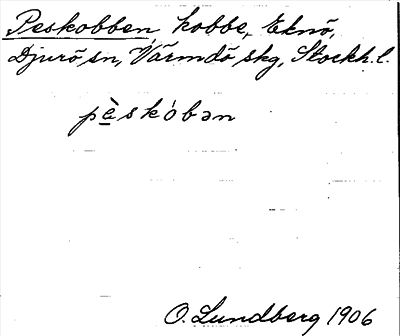 Peskobben, kobbe, Eknö,
Djurö sn, Värmdö skg, Stockh. l.
pe̠̋skóbən
O. Lundberg 1906